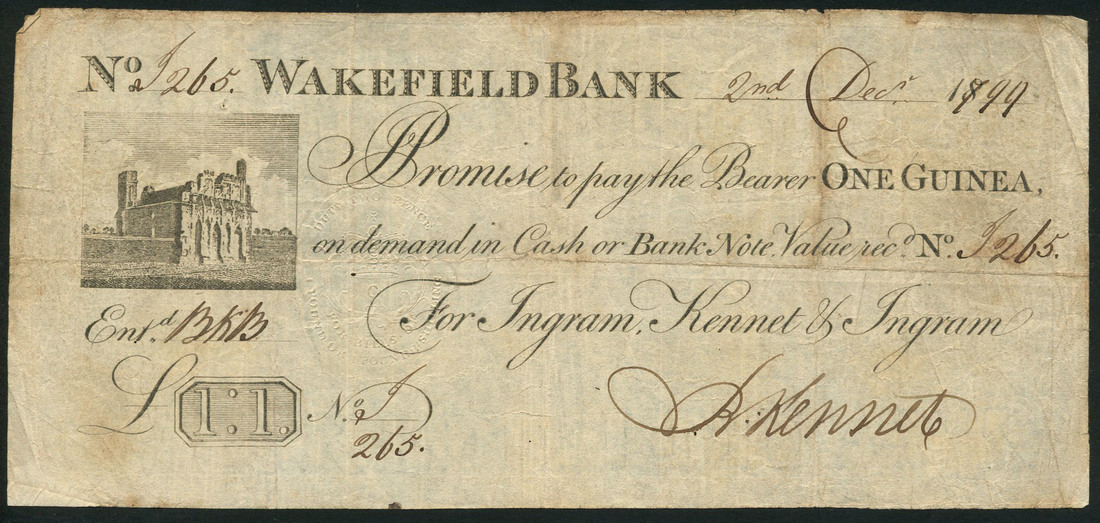 No J 265. WAKEFIELD BANK 2nd Decr 1799
I Promise to pay the Bearer ONE GUINEA,
on demand in Cash or Bank Note Value recd. No. J 265.
For Ingram, Kennet & Ingram
Entd BKB
£ 1:1. No. J 265.
R. Kennet